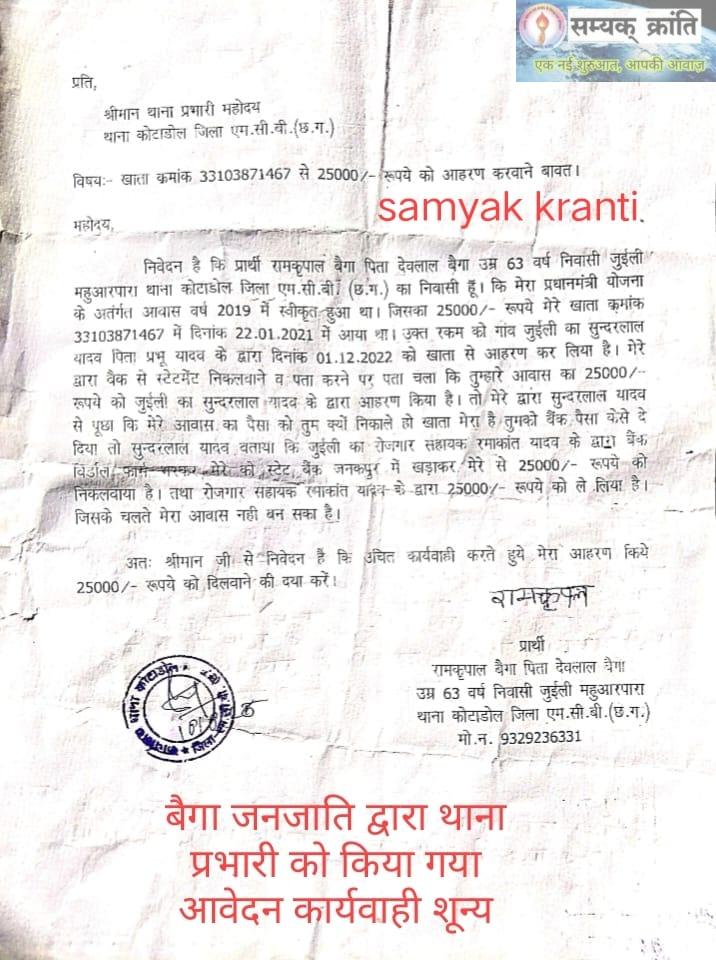 सम्यक् क्रांति
एक नई शुरुआत, आपकी आवाज़
प्रति,
श्रीमान थाना प्रभारी महोदय
थाना कोटाडोल जिला एम.सी.बी.(छ.ग.)
विषयः- खाता कमांक 33103871467 से 25000/- रूपये को आहरण करवाने बावत।
samyak kranti
महोदय,
निवेदन है कि प्रार्थी रामकृपाल बैगा पिता देवलाल बैगा उम्र 63 वर्ष निवासी जुईली
महुआरपारा थाना कोटाडोल जिला एम.सी.बी. (छ.ग.) का निवासी हूँ। कि मेरा प्रधानमंत्री योजना
के अतंर्गत आवास वर्ष 2019 में स्वीकृत हुआ था। जिसका 25000/- रूपये मेरे खाता कमांक
33103871467 में दिनांक 22.01.2021 में आया था। उक्त रकम को गांव जुईली का सुन्दरलाल
यादव पिता प्रभू यादव के द्वारा दिनांक 01.12.2022 को खाता से आहरण कर लिया है। मेरे
द्वारा वैक से स्टेटमेंट निकलवाने व पता करने पर पता चला कि तुम्हारे आवास का 25000/-
रूपये को जुईली का सुन्दरलाल यादव के द्वारा आहरण किया है। तो मेरे द्वारा सुन्दरलाल यादव
से पूछा कि मेरे आवास का पैसा को तुम क्यों निकाले हो खाता मेरा है तुमको बैंक पैसा केसे दे
दिया तो सुन्दरलाल यादव वताया कि जुईली का रोजगार सहायक रमाकांत यादव के द्वारा बैंक
विडॉल फार्म भरकर मेरे को स्टेट बैंक जनकपुर में खड़ाकर मेरे से 25000/- रूपये को
निकलवाया है। तथा रोजगार सहायक रमाकांत यादव के द्वारा 25000/- रूपये को ले लिया है।
जिसके चलते मेरा आवास नही बन सका है।
अतः श्रीमान जी से निवेदन है कि उचित कार्यवाही करते हुये मेरा आहरण किये
25000/- रूपये को दिलवाने की दया करें।
रामकृपाल
प्रार्थी
रामकृपाल बैगा पिता देवलाल बैगा
उम्र 63 वर्ष निवासी जुईली महुआरपारा
थाना कोटाडोल जिला एम.सी.बी.(छ.ग.)
मो.न. 9329236331
थाना कोटाडोल
बैगा जनजाति द्वारा थाना
प्रभारी को किया गया
आवेदन कार्यवाही शून्य